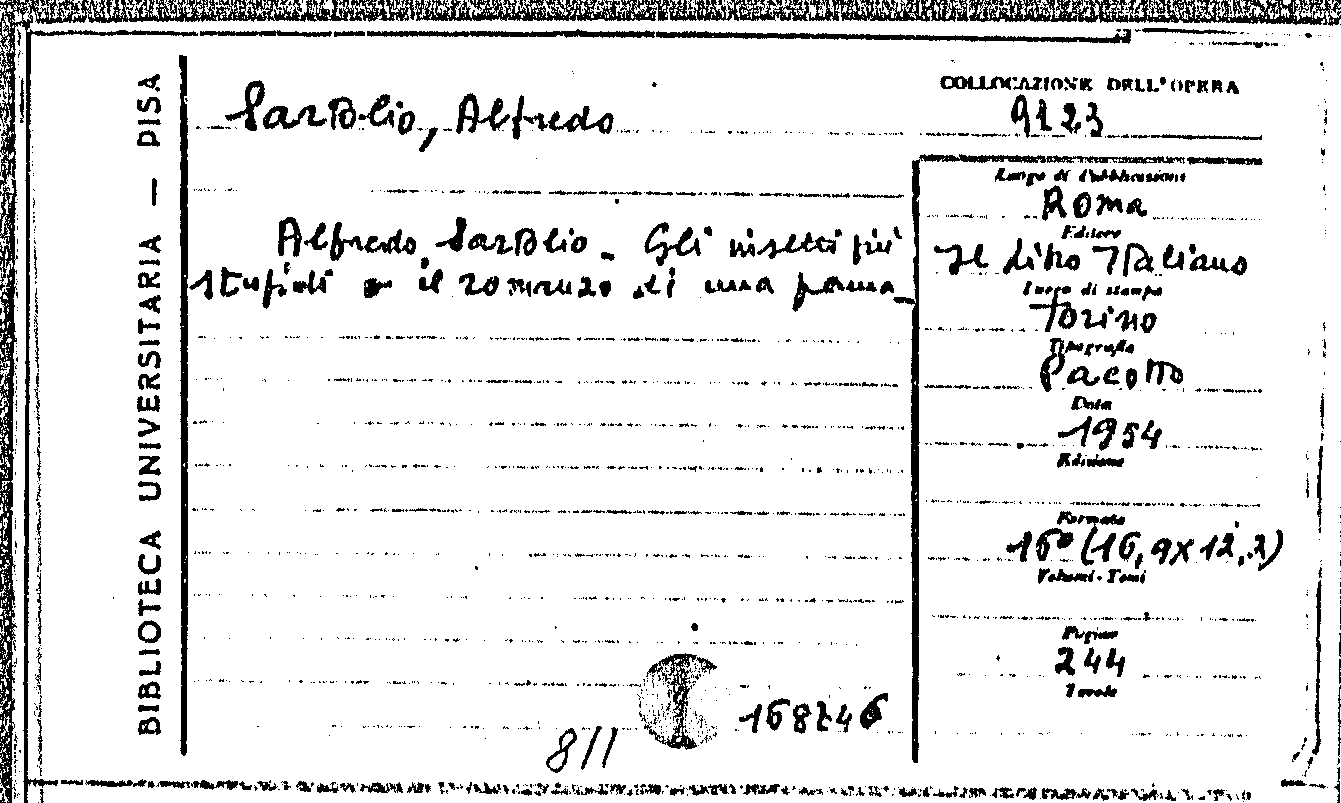 BIBLIOTECA UNIVERSITARIA — PISA
Sartolio, Alfredo
Alfredo Sartolio - Gli insetti più
stupidi o il romanzo di una
COLLOCAZIONE DELL'OPERA
9123
Luogo di Pubblicazione
Roma
Editore
Il Libro Italiano
Luogo di stampa
Torino
Tipografia
Pacotto
Data
1954
Edizione
Formato
16º (16,9x12,2)
Volumi - Tomi
Pagine
244
Tavole
811